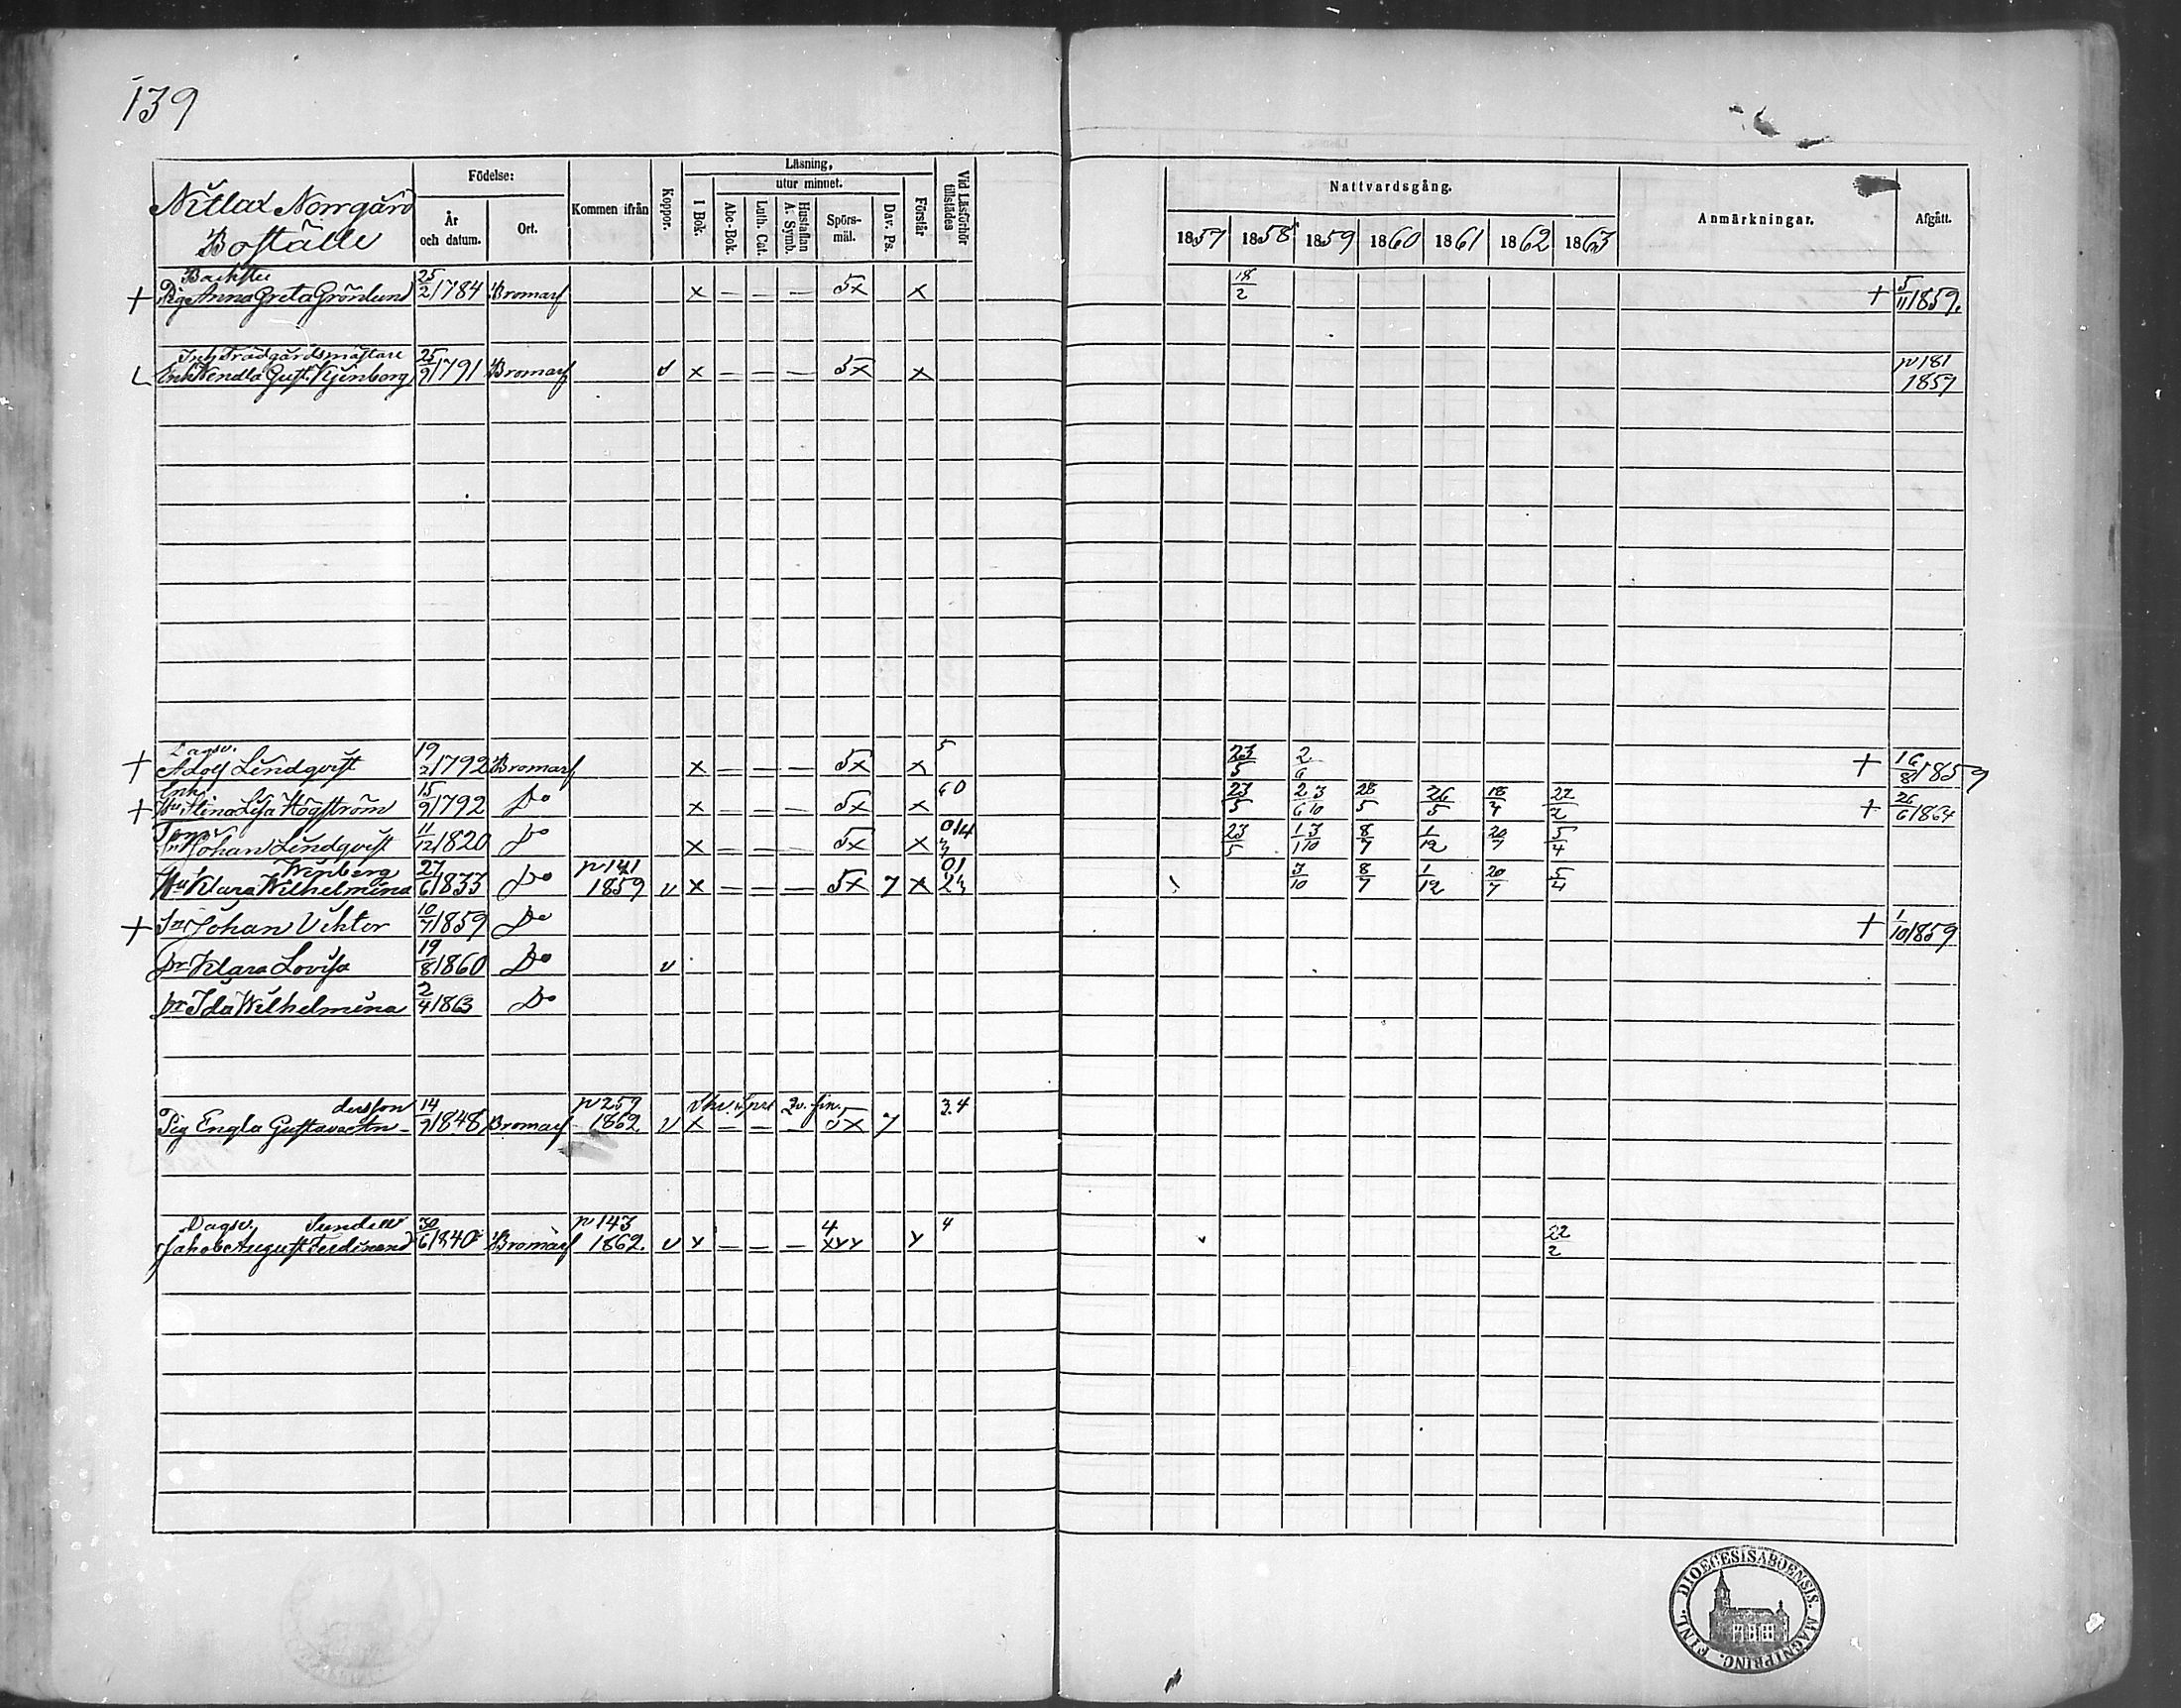 139
Nitlax Norrgård
Boställe
Födelse:
År
och datum.
Ort.
Kommen ifrån
Koppor.
Läsning,
utur minnet.
I Bok.
Abc-Bok.
Luth. Cat.
Hustaflan
A. Symb.
Spörs-
mål.
Dav. Ps.
Förstår
Vid Läsförhör
tillstädes
Nattvardsgång.
1857 1858 1859 1860 1861 1862 1863
Anmärkningar.
Afgått.
Backstu
+ Pig Anna Greta Grönlund 25/2 1784 Bromarf x — — — 5x x 18/2 + 5/11 1859.
Inh Trädgårdsmästare
Enk Wendla Gust. 25/9 1791 Bromarf v x — — — 5x x p 181
1857
Dagsv.
+ Adolf Lindqvist 19/2 1792 Bromarf x — — — 5x x 5 23/5 2/6 + 16/8 1859
Enk.
+ Hu Stina Lisa Högström 15/9 1792 Do x — — — 5x x 60 23/5 2/6 3/10 28/5 26/5 18/4 22/2 + 26/6 1864
Sn Johan Lindqvist 11/12 1820 Do x — — — 5x x 014 23/5 1/1 3/10 8/7 1/12 20/7 5/4
Wenberg p 141 01
Hu Klara Wilhelmina 27/6 1833 Do 1859 v x — — — 5x 7 x 23 3/10 8/7 1/12 20/7 5/4
+ Sn Johan Viktor 10/7 1859 Do + 1/10 1859
Dr Klara Lovisa 19/8 1860 Do v
Dr Ida Wilhelmina 2/4 1863 Do
dersson p 259 3.4
Pig Engla Gustava An- 14/9 1848 Bromarf 1862. v x — — — 5x 7
Dagsv. Sundell p 143 4 4
Jakob August Ferdinand 30/6 1840 Bromarf 1862. v x — — — xxx x 22/2
FINL. DIOECESIS ABOENSIS. MAGNI PRINC.